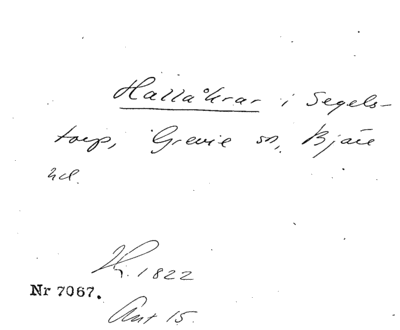 Hallåkrar i Segels-
torp, Grevie sn, Bjäre
hd.
1822
Nr 7067.
Ant 15.